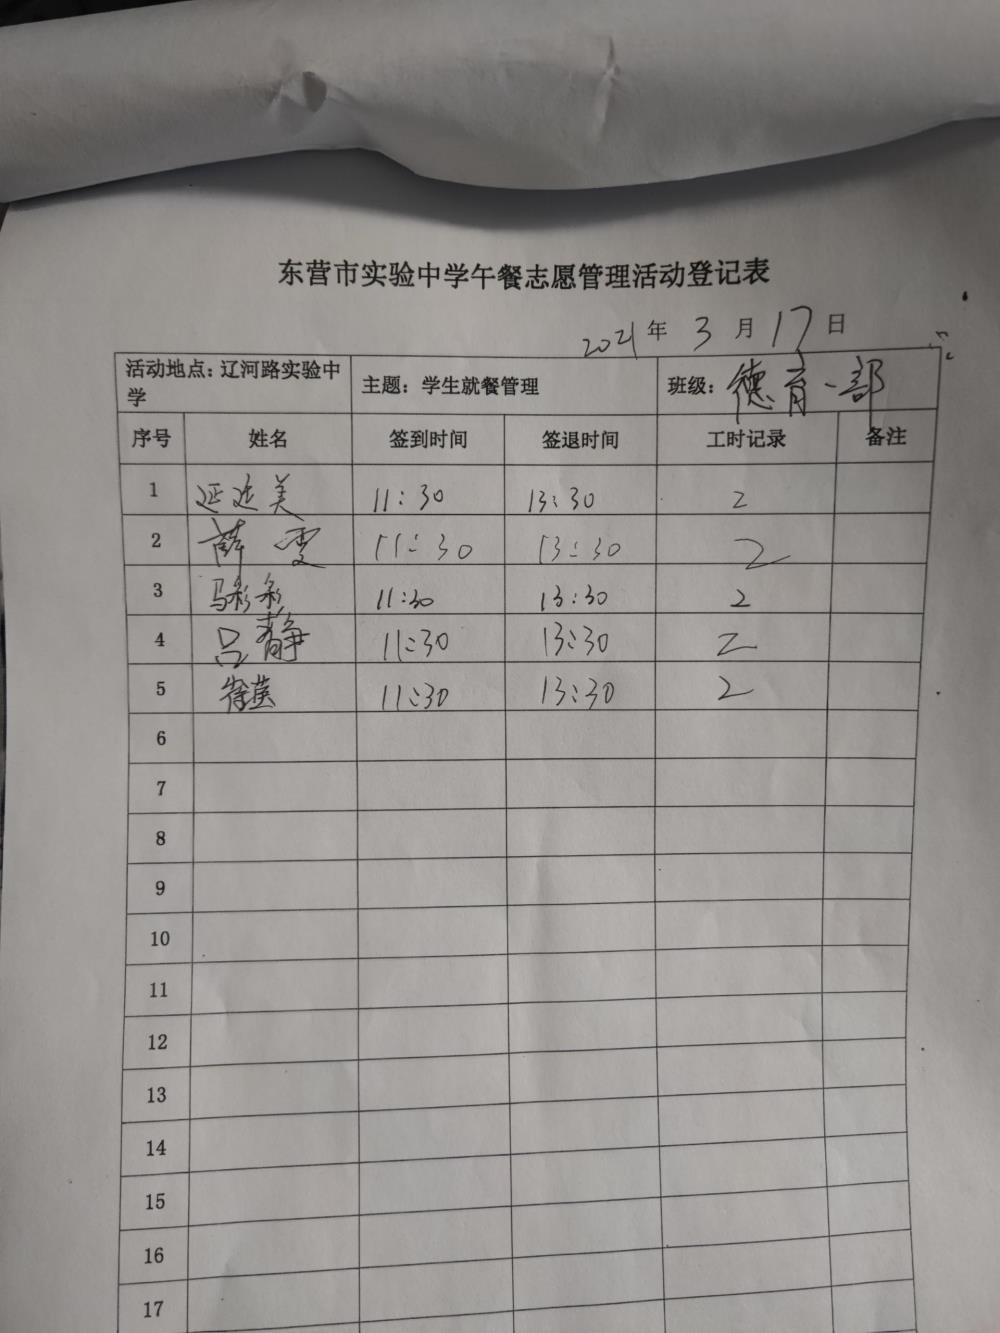 东营市实验中学午餐志愿管理活动登记表
2021年 3月17日
活动地点：辽河路实验中学 主题：学生就餐管理 班级：德育一部
序号 姓名 签到时间 签退时间 工时记录 备注
1 延廷美 11:30 13:30 2
2 薛雯 11:30 13:30 2
3 马彩彩 11:30 13:30 2
4 吕静 11:30 13:30 2
5 11:30 13:30 2
6
7
8
9
10
11
12
13
14
15
16
17